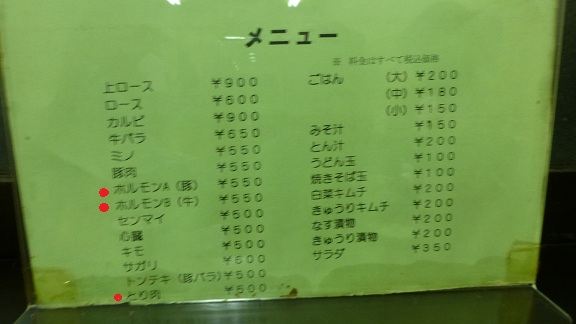 メニュー
※ 料金はすべて税込価格
上ロース ￥900
ロース ￥600
カルビ ￥900
牛バラ ￥650
ミノ ￥550
豚肉 ￥550
ホルモンA（豚） ￥550
ホルモンB（牛） ￥550
センマイ ￥500
心臓 ￥500
キモ ￥500
サガリ ￥600
トンテキ（豚バラ） ￥500
とり肉 ￥500
ごはん （大） ￥200
（中） ￥180
（小） ￥150
みそ汁 ￥150
とん汁 ￥200
うどん玉 ￥100
焼きそば玉 ￥100
白菜キムチ ￥200
きゅうりキムチ ￥200
なす漬物 ￥200
きゅうり漬物 ￥200
サラダ ￥350